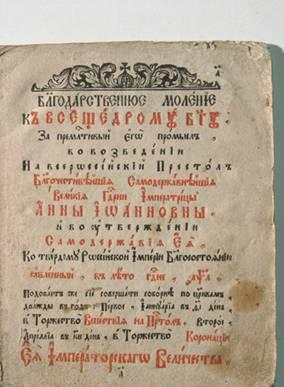 БЛГОДАРСТВЕННОЕ МОЛЕНІЕ
КЪ ВСЕЩЕДРОМꙋ БГꙋ
За премлтивый егѡ промыслъ
во возведенїи
На всерѡссійскїй Престолъ
Благочестивѣйшїя Самодержавнѣйшїя
Великїя Гдрни Імператрицы
АННЫ ІѠАННОВНЫ
и во утвержденїи
Самодержавїя Еѧ
Ко твардому Рѡссійской Імперіи Благосостоѧнїю
въ лѣто Гдне
Подобаетъ же сїе совершати соборнѣ по црквамъ
дважды въ годъ Первое Іаннуарїа въ дї дена
в Торжество на Прⷭ҇толъ Второе
Апрїлїа въ ки дена в Торжество Коронацїи
Еѧ Імператорскагѡ Величества